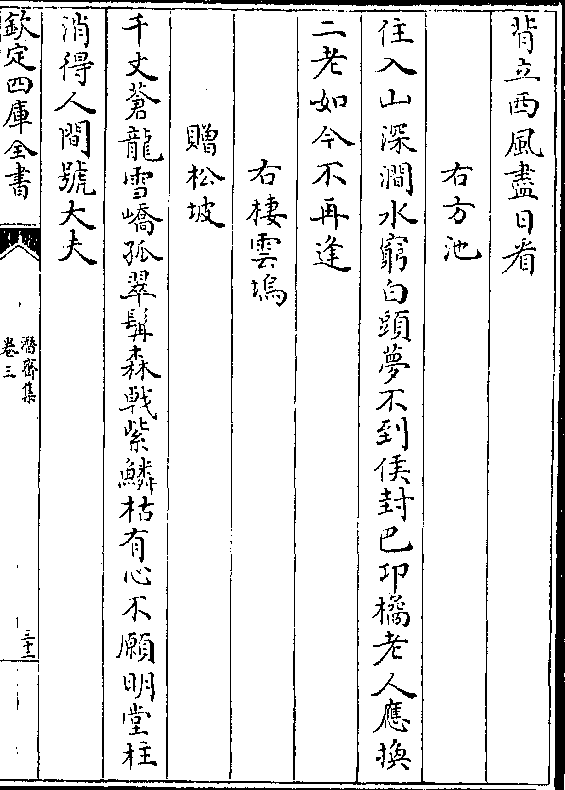 背立西風盡日看
右方池
住入山深澗水窮白頭夢不到侯封巴邛橘老人應換
二老如今不再逢
右棲雲塢
贈松坡
千丈蒼龍雪嶠孤翠髯森戟紫鱗枯有心不願明堂柱
消得人間號大夫
欽定四庫全書
潛齋集
卷三